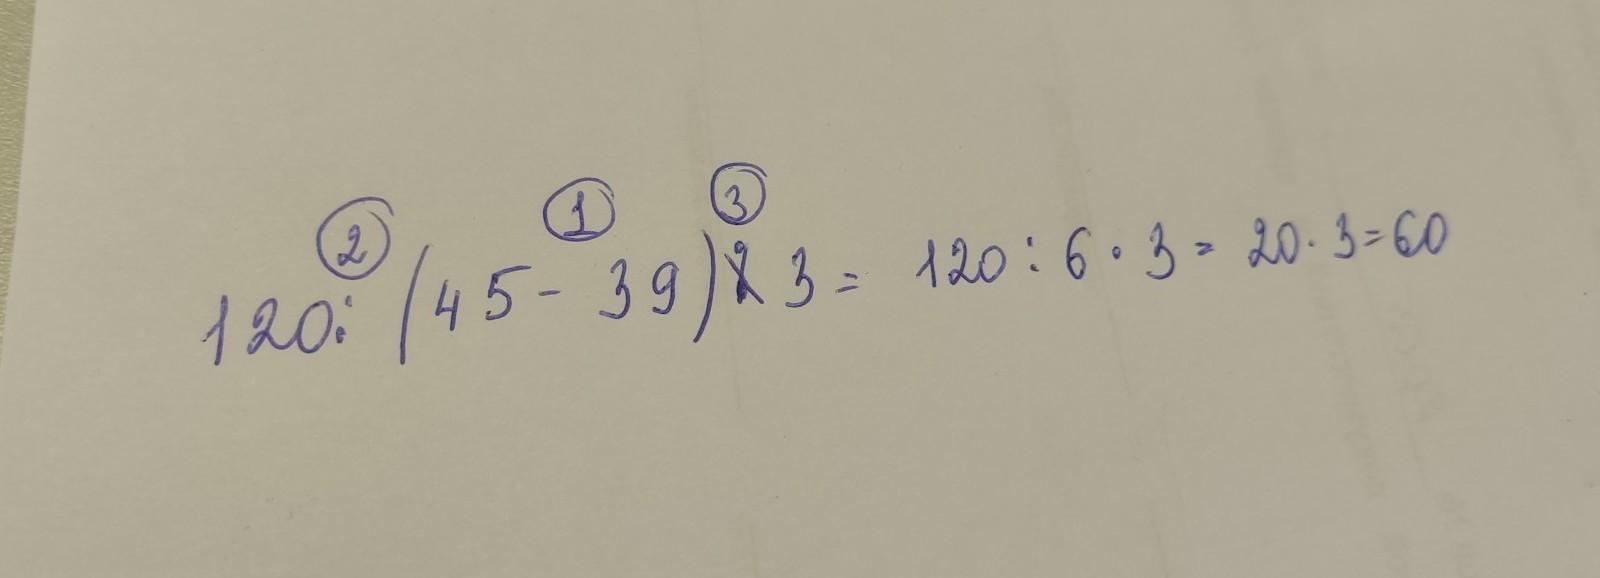 ② ① ③
120 : (45 - 39) x 3 = 120 : 6 · 3 = 20 · 3 = 60